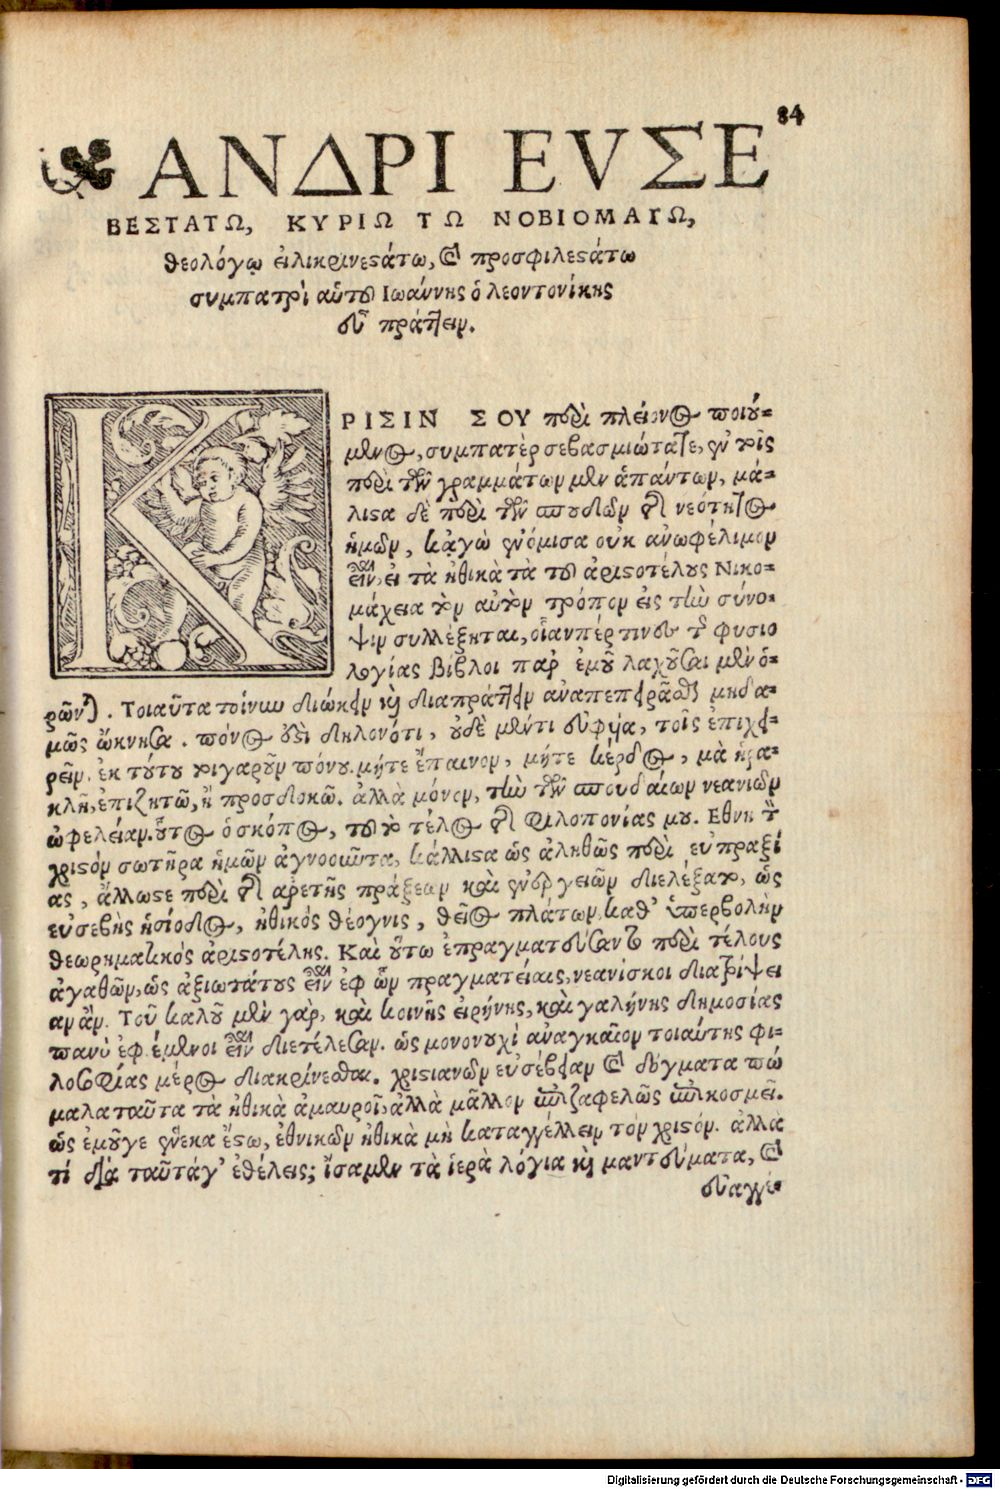 84
ΑΝΔΡΙ ΕΥΣΕ
ΒΕΣΤΑΤΩ, ΚΥΡΙΩ ΤΩ ΝΟΒΙΟΜΑΓΩ,
θεολόγῳ εἰλικρινεστάτω, καὶ προσφιλεστάτω
συμπατρὶ αὑτοῦ Ιωάννης ὁ λεοντονίκης
εὖ πράττειν.
ΚΡΙΣΙΝ ΣΟΥ περὶ πλείονος ποιού=
μενος, συμπατὲρ σεβασμιώτατε, ἣν τρὶς
περὶ τῶν γραμμάτων μὲν ἁπάντων, μά=
λιστα δὲ περὶ τῶν σπουδῶν τῆς νεότητος
ἡμῶν, κᾀγὼ ἐνόμισα ουκ ανωφέλιμον
εἶναι, εἰ τὰ ἠθικὰ τὰ τοῦ ἀριστοτέλους Νικο=
μάχεια τὸν αὐτὸν τρόπον εἰς τὴν σύνο=
ψιν συλλέξηται, οἷανπέρ τινα τῆς φυσιο
λογίας βίβλοι παρ ἐμοῦ λαχοῦσαι μὲν ὁ=
ρῶνται. Τοιαῦτα τοίνυν διώκειν καὶ διαπράττειν αναπεπειρᾶσθαι μηδα=
μῶς ὤκνησα. πόνος δεῖ δηλονότι, οὐδὲ μέντι εὐφυία, τοῖς ἐπιχει=
ρεῖν. ἐκ τούτου τιγαροῦν πόνου. μήτε ἔπαινον, μήτε κέρδος, μὰ ἡρα=
κλῆ, ἐπιζητῶ, ἢ προσδοκῶ. ἀλλὰ μόνον, τὴν τῶν σπουδαίων νεανιῶν
ὠφελείαν. οὗτος ὁ σκόπος, τοῦτο τέλος τῆς φιλοπονίας μου. Εθνη τὸν
χριστὸν σωτῆρα ἡμῶν αγνοοῦντα, κάλλιστα ὡς ἀληθῶς περὶ εὐπραξί
ας, ἄλλωστε περὶ τῆς αρετῆς πράξεων καὶ ἐνεργειῶν διελέξατο, ὡς
εὐσεβὴς ἡσίοδος, ἠθικός θέογνις, θεῖος πλάτων, καθ' ὑπερβολὴν
θεωρηματικὸς ἀριστοτέλης. Καὶ οὕτω ἐπραγματεύσαντο περὶ τέλους
ἀγαθῶν, ὡς ἀξιωτάτους εἶναι ἐφ ὧν πραγματείαις, νεανίσκοι διατρίψει
αν ἂν. Τοῦ καλοῦ μὲν γὰρ, καὶ κοινῆς εἰρήνης, καὶ γαλήνης δημοσίας
πανὺ ἐφ έμενοι εἶναι διετέλεσαν. ὡς μονονουχί αναγκαῖον τοιαύτης φι=
λοσοφίας μέρος διακρίνεσθαι. χριστιανῶν εὐσέβειαν καὶ δόγματα πώ
μαλαταῦτα τὰ ἠθικὰ ἀμαυροῖ, ἀλλὰ μᾶλλον ἐπιζαφελῶς ἐπικοσμεῖ.
ὡς ἐμοῦγε ἕνεκα ἔστω, ἐθνικῶν ἠθικὰ μὴ καταγγέλλειν τὸν χριστόν. ἀλλὰ
τί διὰ ταῦτάγ' ἐθέλεις; ἴσαμεν τὰ ἱερὰ λόγια καὶ μαντεύματα, καὶ
εὐαγγε=
Digitalisierung gefördert durch die Deutsche Forschungsgemeinschaft - DFG